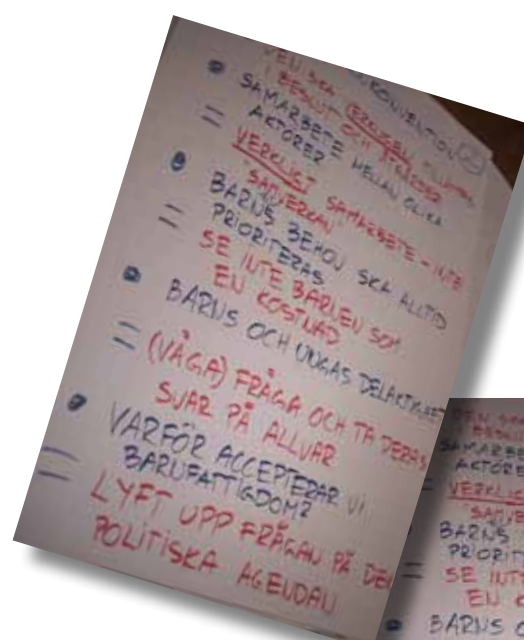 KONVENTION
DEN SKA VERKLIGEN
BESLUT OCH ÅTGÄRDER
SAMARBETE MELLAN OLIKA
AKTÖRER
= VERKLIGT SAMARBETE - INTE
SAMVERKAN
BARNS BEHOV SKA ALLTID
PRIORITERAS
= SE INTE BARNEN SOM
EN KOSTNAD
BARNS OCH UNGAS DELAKTIGHET
= (VÅGA) FRÅGA OCH TA DERAS
SVAR PÅ ALLVAR
VARFÖR ACCEPTERAR Vi
BARNFATTIGDOM?
= LYFT UPP FRÅGAN PÅ DEN
POLITISKA AGENDAN
SAMARBE
AKTÖRE
VERKLIG
SAMVE
BARNS
PRIORIT
= SE INT
EN K
BARNS O